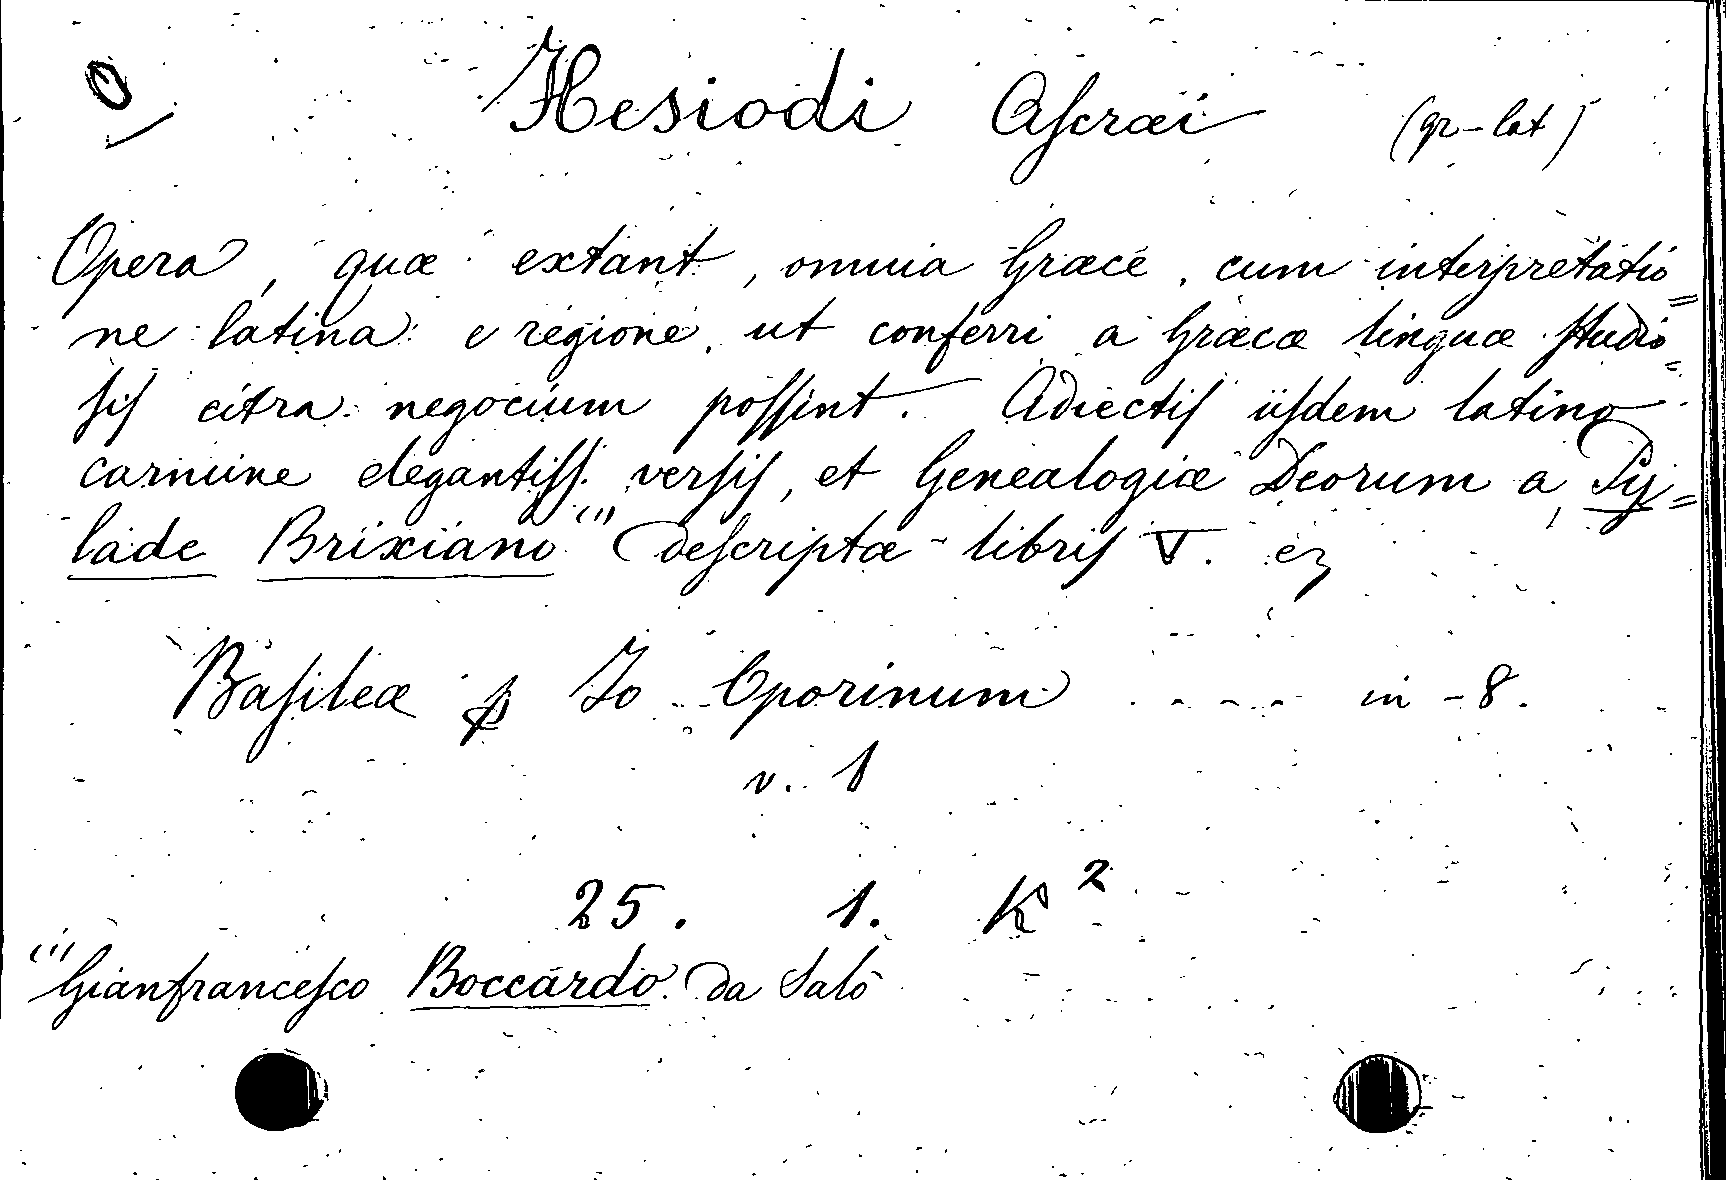 O
Hesiodi Aſcræi (gr-lat)
Opera, quæ extant, omnia Græcè, cum interpretatio=
ne latina e regione, ut conferri a Græcæ linguæ ſtudio=
ſiſ citra negocium poſſint. Adiectiſ iiſdem latino
carmine elegantiſſ. verſiſ, et Genealogiæ Deorum a Py=
lade Brixiano (1) deſcriptæ libriſ V. ez
Baſileæ p Io Oporinum ..... in-8.
v. 1
25. 1. K²
(1) Gianfranceſco Boccardo da Salò